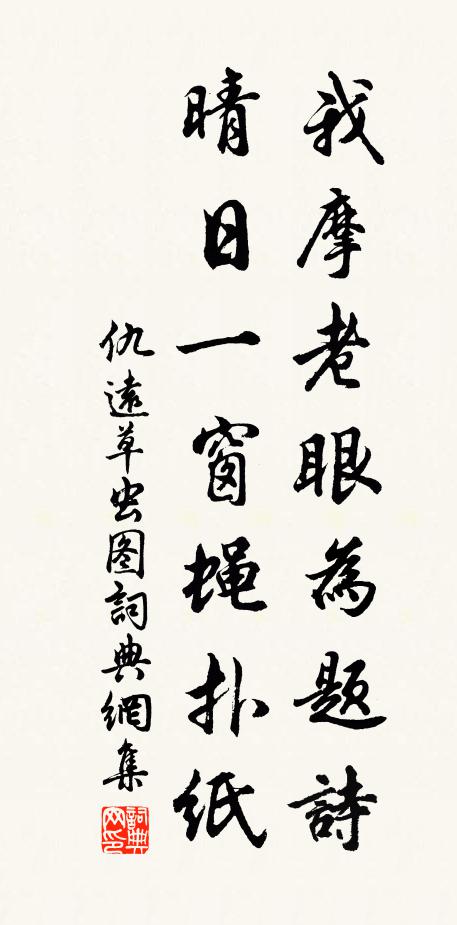 我摩老眼為题詩
晴日一窗蝇扑紙
仇遠草虫图詞典網集
詞典网印